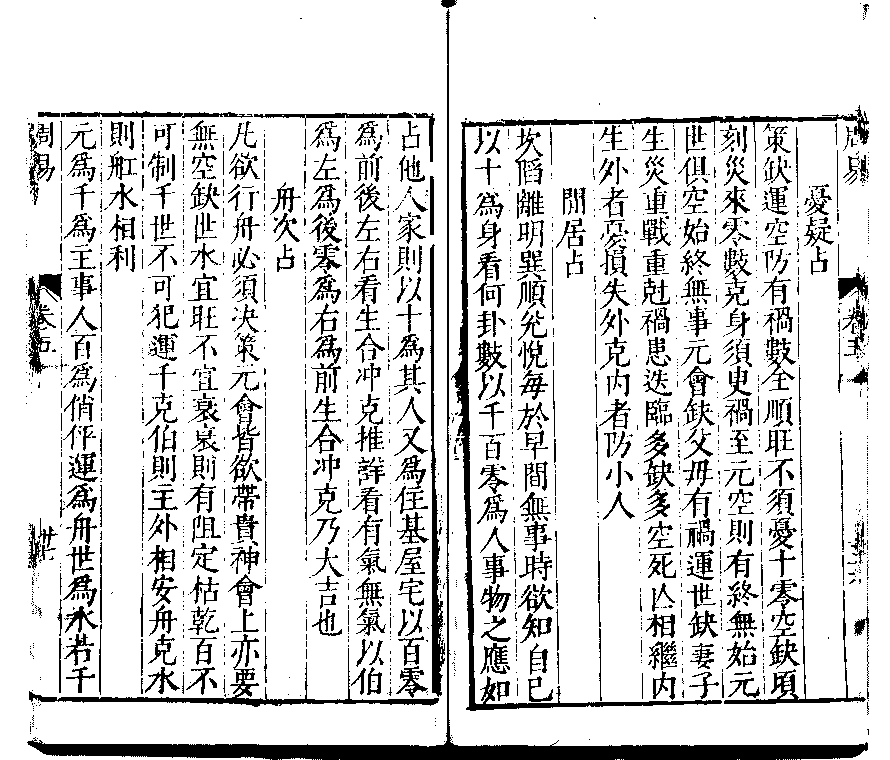 周易
卷五
憂疑占
策缺運空防有禍數全順旺不須憂十零空缺頃
刻災來零數克身須史禍至元空則有終無始元
世俱空始終無事元會缺父母有禍運世缺妻子
生災重戰重尅禍患迭臨多缺多空死亾相繼内
生外者憂損失外克内者防小人
閒居占
坎陷離明巽順兌悅每於早間無事時欲知自己
以十為身看何卦數以千百零為人事物之應如
占他人家則以十為其人又為住基屋宅以百零
為前後左右看生合冲克推詳看有氣無氣以伯
為左為後零為右為前生合冲克乃大吉也
舟次占
凡欲行舟必須決策元會皆欲帶貴神會上亦要
無空缺世水宜旺不宜衰衰則有阻定枯乾百不
可制千世不可犯運千克伯則主外相安舟克水
則舡水相利
元為千為主事人百為俏伻運為舟世為水若千
周易
卷五